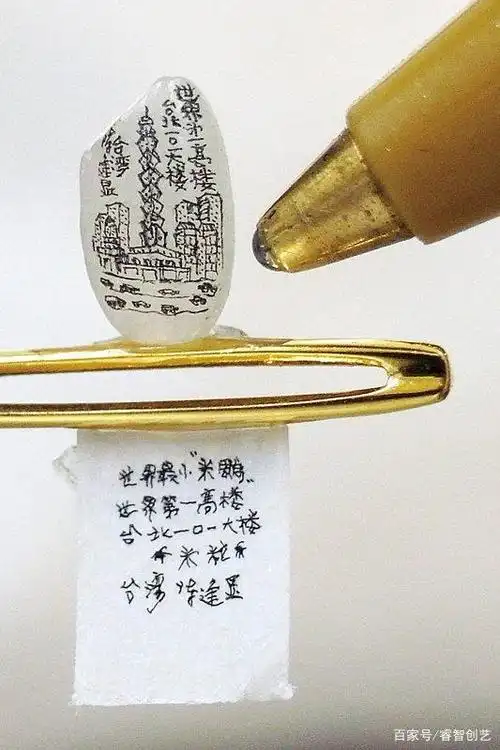 世界第一高楼
台北一〇一大楼
台湾
陈逢显
世界最小"米雕"
世界第一高楼
台北一〇一大楼
米粒
台湾 陈逢显
百家号/睿智创艺